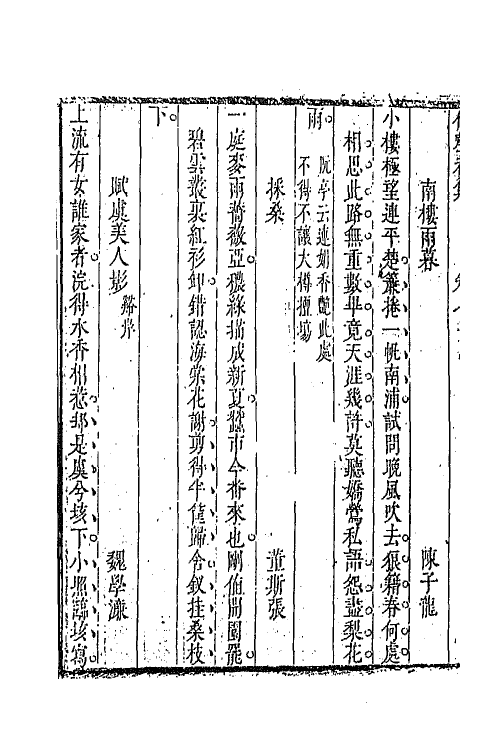 南樓雨暮 陳子龍
小樓極望連平楚簾捲一帆南浦試問晚風吹去狼籍春何處
相思此路無重數畢竟天涯幾許莫聽嬌鶯私語怨盡梨花
雨 阮亭云連媚香艷此處
不得不讓大樽擅場
採桑 董斯張
一庭麥雨薔薇亞穠綠描成新夏蠶市今番來也剛値閒圍罷
碧雲叢裏紅衫卸錯認海棠花謝剪得半筐歸舍釵挂桑枝
下
賦虞美人影 魏學濂
上流有女誰家者浣得水香相惹却是虞兮垓下小照臨垓寫